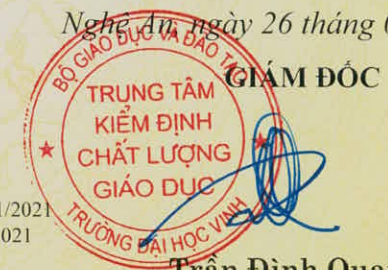 Nghệ An, ngày 26 tháng
GIÁM ĐỐC
BỘ GIÁO DỤC VÀ ĐÀO TẠO
TRUNG TÂM
KIỂM ĐỊNH
CHẤT LƯỢNG
GIÁO DỤC
TRƯỜNG ĐẠI HỌC VINH
/2021
021
Trần Đình